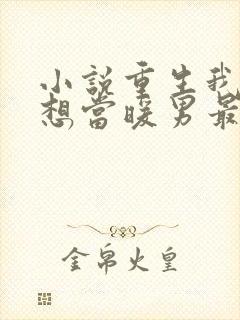 小說重生我
想當暖男最
金帛火皇